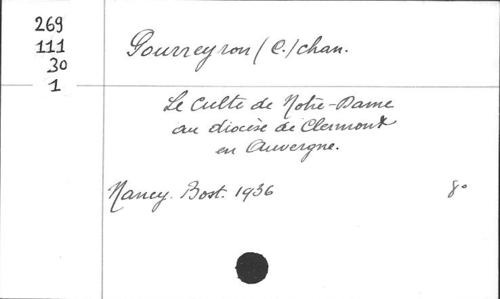 269
111
30
1
Pourreyron (C.) chan.
Le Culte de Notre-Dame
au diocèse de Clermont
en Auvergne.
Nancy. Bost. 1936 8°